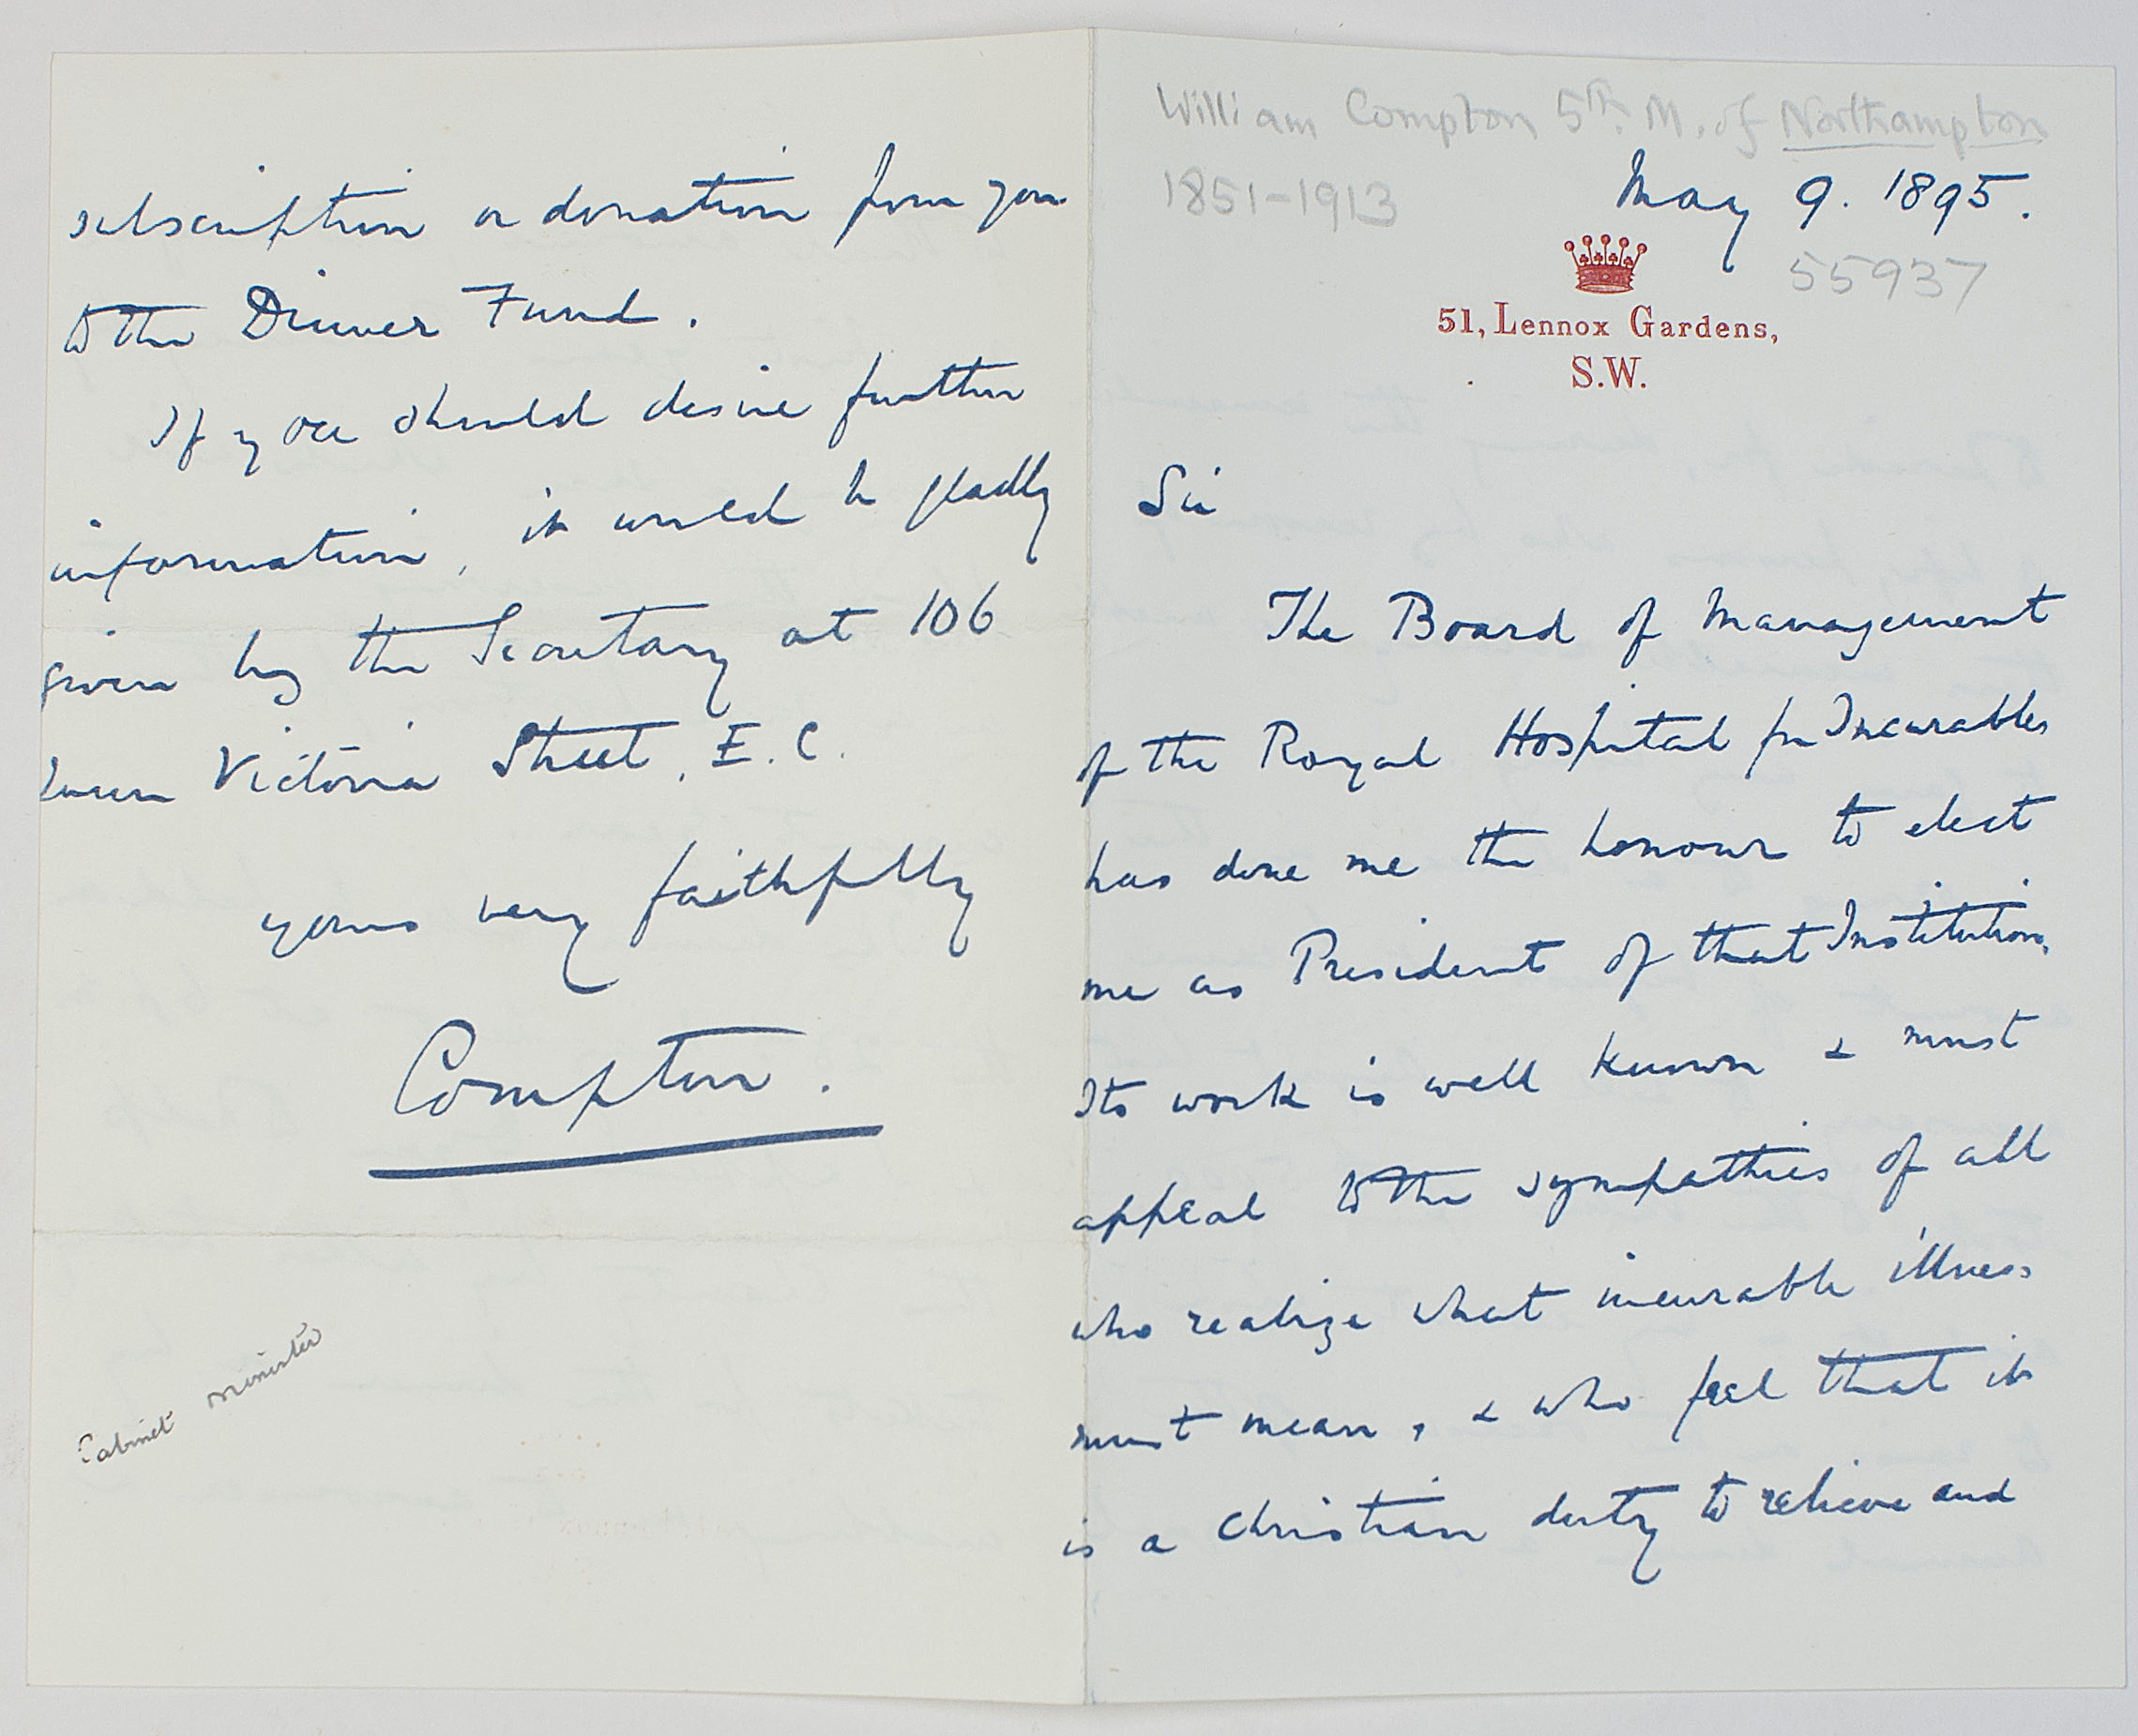 William Compton 5th M. of Northampton
1851-1913
May 9. 1895.
55937
51, Lennox Gardens,
S.W.
Sir
The Board of Management
of the Royal Hospital for Incurables
has done me the honour to elect
me as President of that Institution.
Its work is well known & must
appeal to the sympathies of all
who realize what incurable illness
must mean, & who feel that it
is a Christian duty to relieve and
subscription or donation from you
to the Dinner Fund.
If you should desire further
information, it would be gladly
given by the Secretary at 106
Queen Victoria Street, E.C.
yours very faithfully
Compton.
Cabinet minister